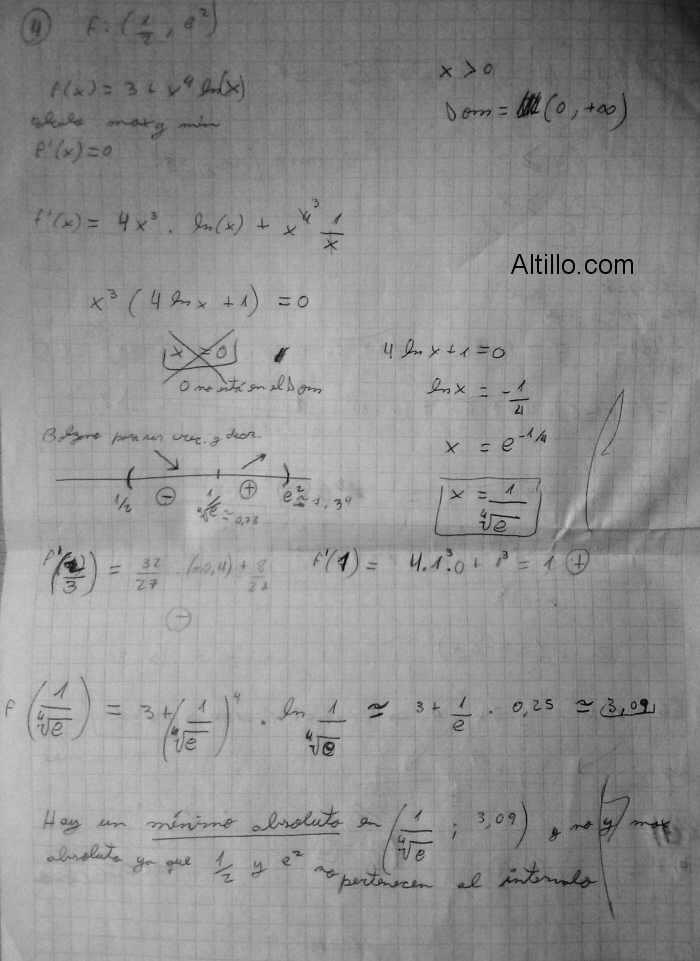 4) f: (1/2 ; e²)
f(x) = 3 + x⁴ ln(x)
x > 0
Dom = (0, +∞)
max y min
f'(x) = 0
f'(x) = 4x³ . ln(x) + x⁴ ³ 1/x
Altillo.com
x³ (4 ln x + 1) = 0
x = 0
0 no está en el Dom
4 ln x + 1 = 0
ln x = -1/4
x = e^(-1/4)
x = 1/⁴√e
Bolzano para ver crec. y decr.
1/2 ⊖ 1/⁴√e ≃ 0,78 ⊕ e² ≃
f'(2/3) = 32/27 . (-0,4) + 8/27
⊖
f'(1) = 4.1³.0 + 1³ = 1 ⊕
f(1/⁴√e) = 3 + (1/⁴√e)⁴ . ln 1/⁴√e ≃ 3 + 1/e . 0,25 ≃ 3,09
Hay un mínimo absoluto en (1/⁴√e ; 3,09) y no y max
absoluto ya que 1/2 y e² no pertenecen al intervalo